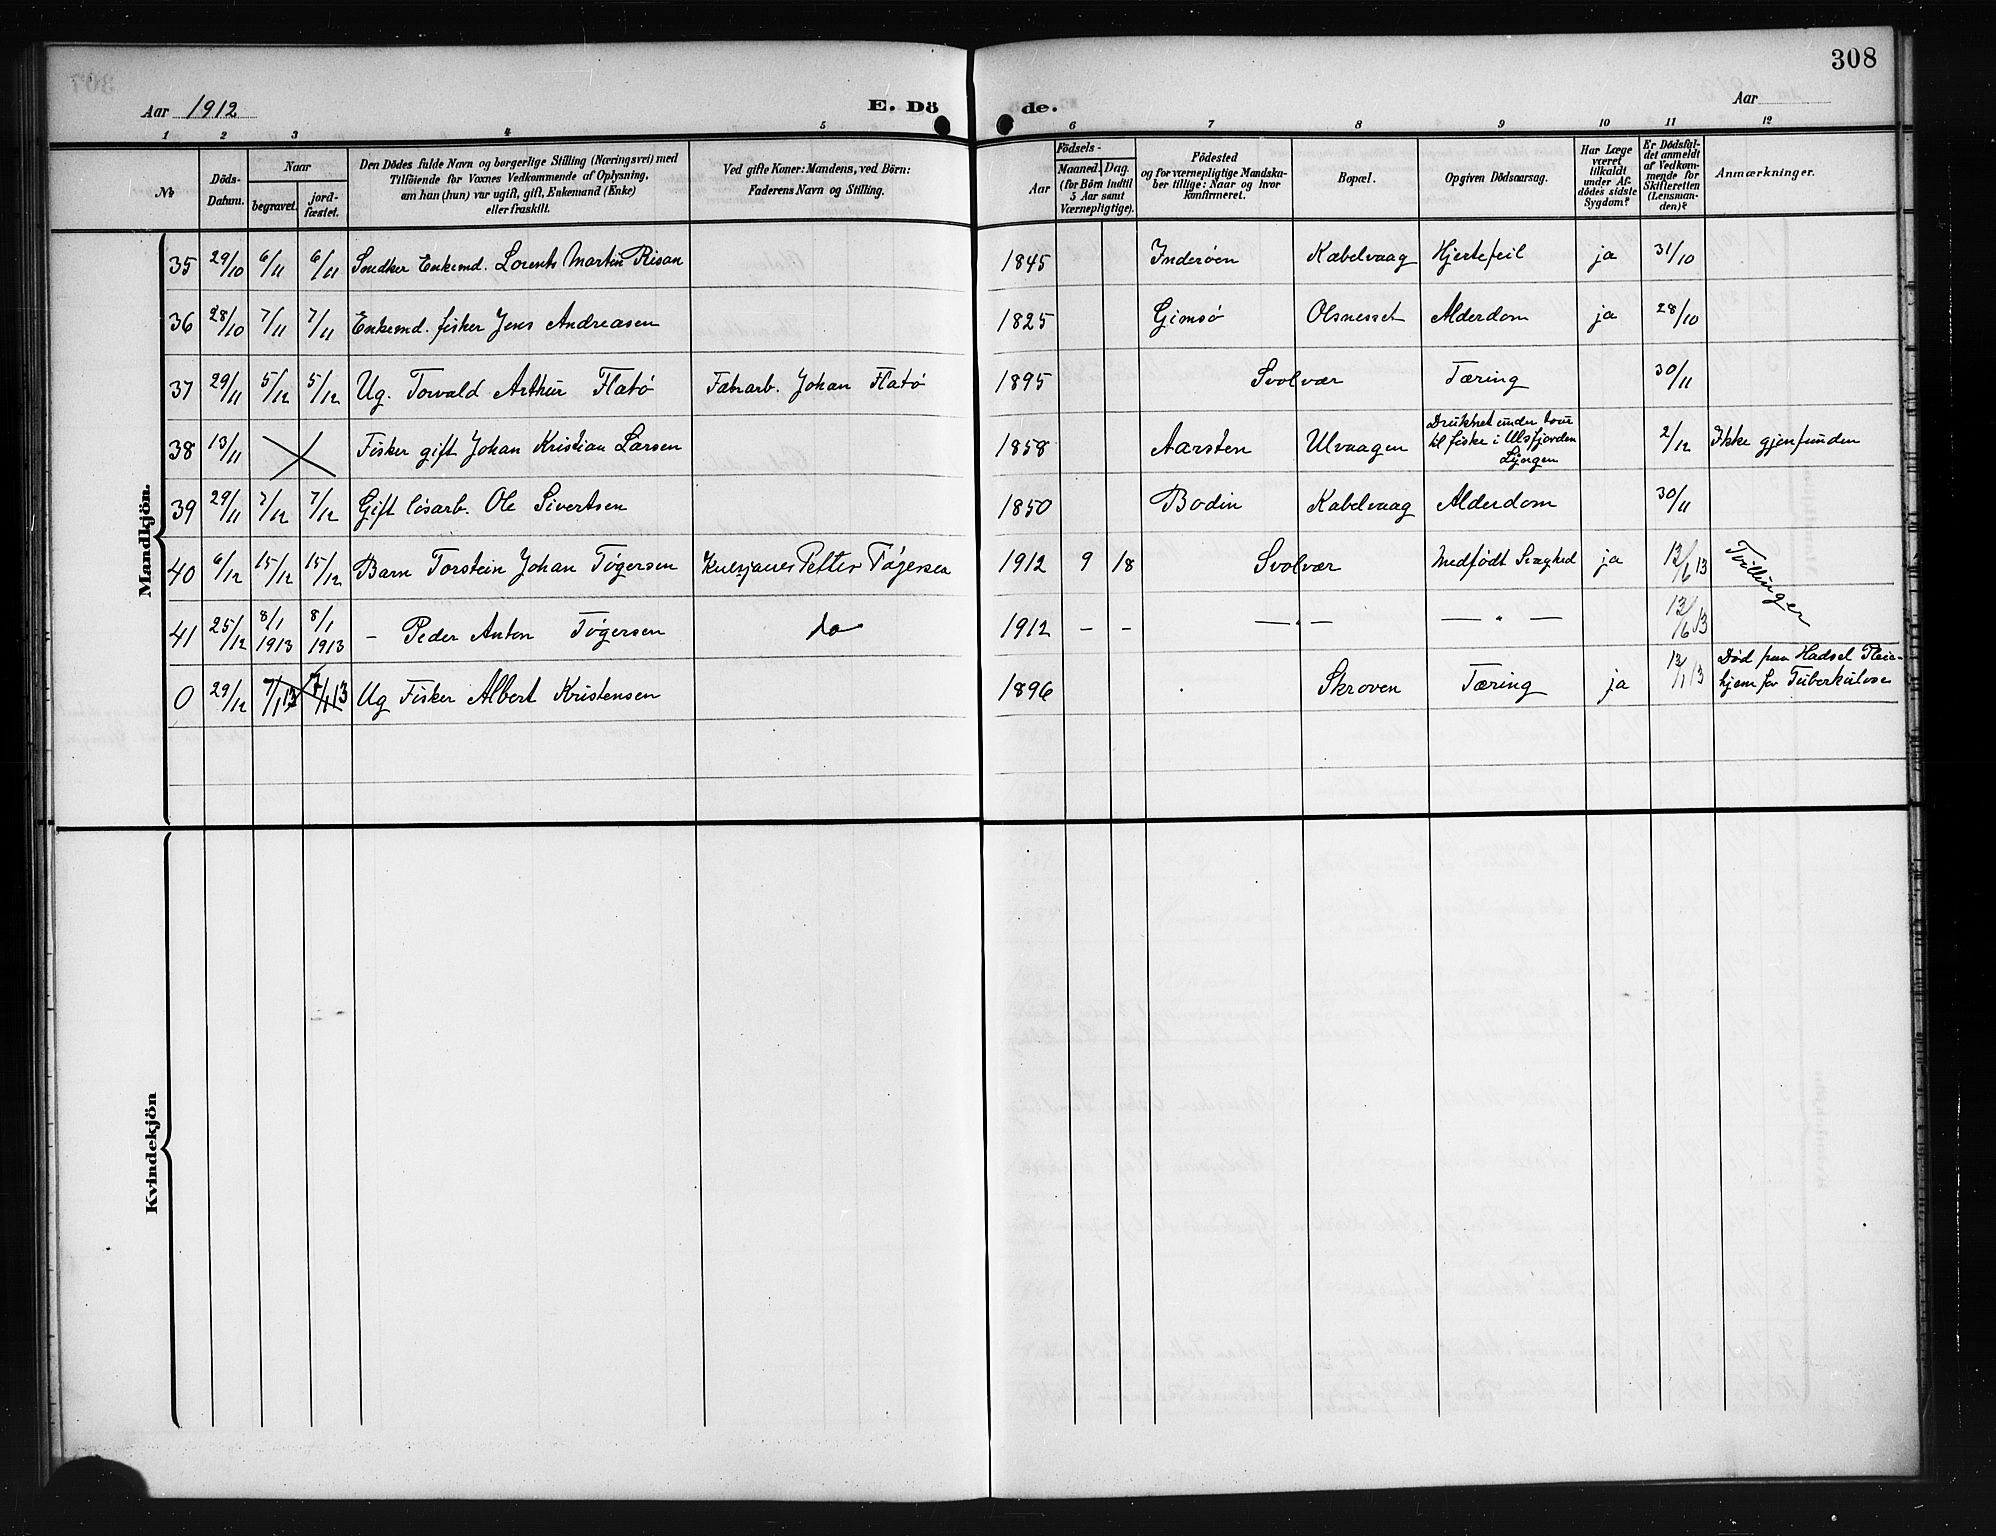 308
Aar 1912
E. Dö
de.
Aar
1 2 3 4 5 6 7 8 9 10 11 12
№
Döds-
Datum.
Naar
begravet.
jord-
fæstet.
Den Dödes fulde Navn og borgerlige Stilling (Næringsvei) med
Tilföiende for Voxnes Vedkommende af Oplysning,
om han (hun) var ugift, gift, Enkemand (Enke)
eller fraskilt.
Ved gifte Koner: Mandens, ved Börn:
Faderens Navn og Stilling.
Födsels-
Aar
Maaned. Dag.
(for Börn indtil
5 Aar samt
Værnepligtige).
Födested
og for værnepligtige Mandska-
ber tillige: Naar og hvor
konfirmeret.
Bopæl.
Opgiven Dödsaarsag.
Har Læge
været
tilkaldt
under Af-
dödes sidste
Sygdom?
Er Dödsfal-
det anmeldt
af Vedkom-
mende for
Skifteretten
(Lensman-
den)?
Anmærkninger.
Mandkjön.
35 29/10 6/11 6/11 Snedker Enkemd. Lorents Martin Risan 1845 Inderøen Kabelvaag Hjertefeil ja 31/10
36 28/10 7/11 7/11 Enkemd. fisker Jens Andreasen 1825 Gimsø Olsnesset Alderdom ja 28/10
37 29/11 5/12 5/12 Ug. Torvald Arthur Flatø Fabrarb. Johan Flatø 1895 Svolvær Tæring 30/11
38 13/11 Fisker gift Johan Kristian Larsen 1858 Aarsten Ulvaagen Druknet under tour
til fiske i Ulsfjorden
Lyngen 2/12 Ikke gjenfunden
39 29/11 7/12 7/12 Gift løsarb. Ole Sivertsen 1850 Bodin Kabelvaag Alderdom 30/11
40 6/12 15/12 15/12 Barn Torstein Johan Tøgersen Petter Tøgersen 1912 9 18 Svolvær Medfødt Svaghed ja 13/6 13 Tvillinger
41 25/12 8/1 1913 8/1 1913 – Peder Anton Tøgersen do 1912 – – — " — — " — 13/6 13
0 29/12 7/1 13 7/1 13 Ug Fisker Albert Kristensen 1896 Skroven Tæring ja 13/1 13 Død paa Hadsel Pleie-
hjem for Tuberkuløse
Kvindekjön